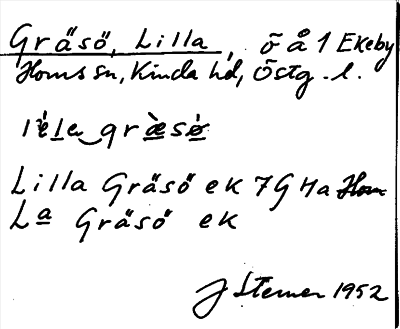 Gräsö, Lilla, ö å 1 Ekeby
Horns sn, Kinda hd, Östg. l.
lèla‿græsø
Lilla Gräsö ek 7G Ha Horn
La Gräsö ek
J Sterner 1952